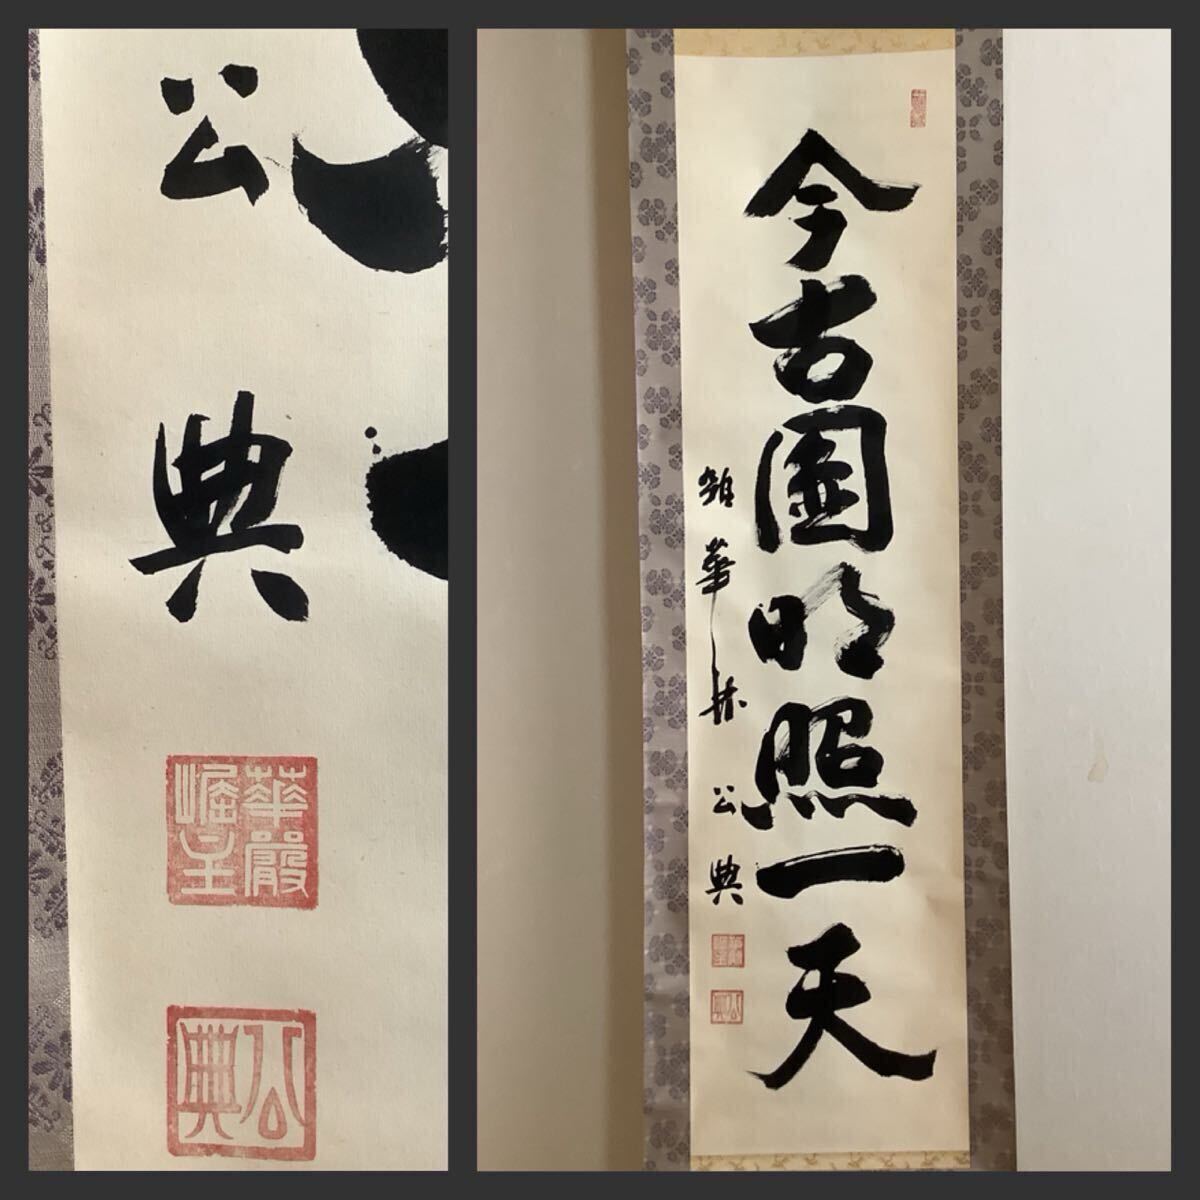 公典
華嚴
窟主
公典
今古圓明照一天
華林公典